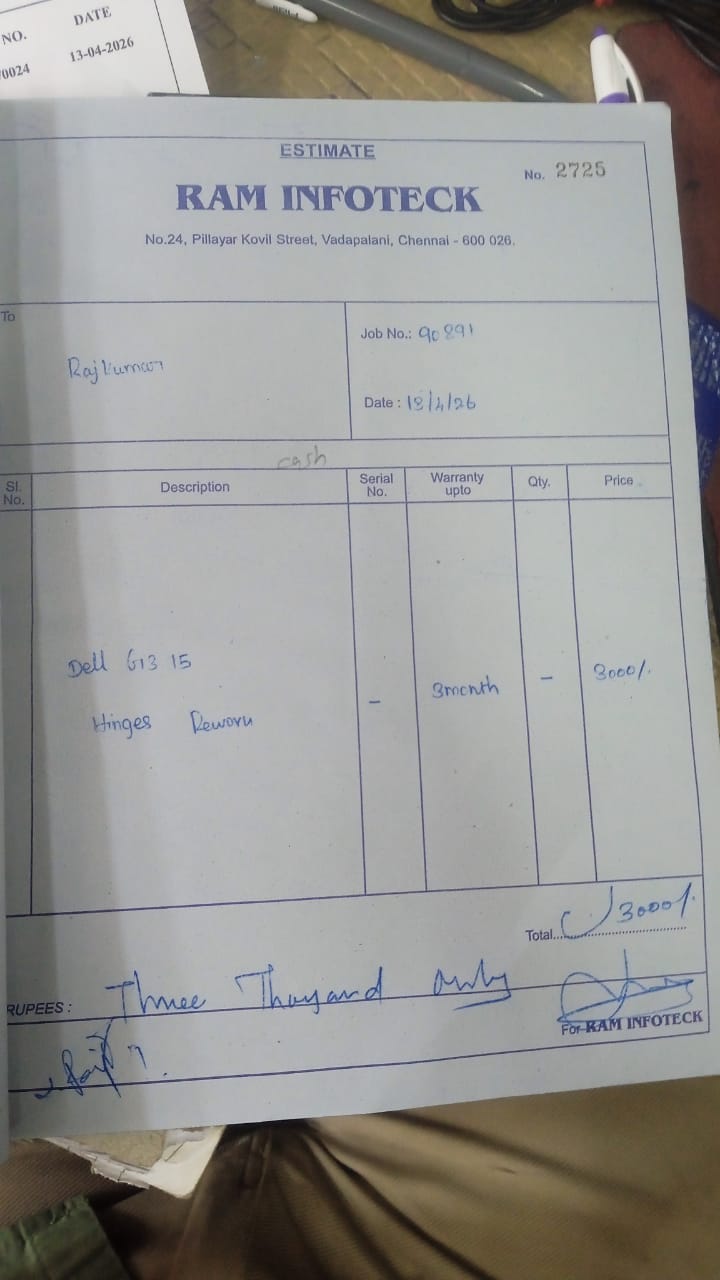 NO.
DATE
0024
13-04-2026
ESTIMATE
No. 2725
RAM INFOTECK
No.24, Pillayar Kovil Street, Vadapalani, Chennai - 600 026.
To
Rajkumar
Job No.: 90891
Date : 18/4/26
cash
Sl. No.
Description
Serial No.
Warranty upto
Qty.
Price
Dell G3 15
Hinges Rework
-
3month
-
3000/.
Total... 3000/.
RUPEES : Three Thousand only
For RAM INFOTECK